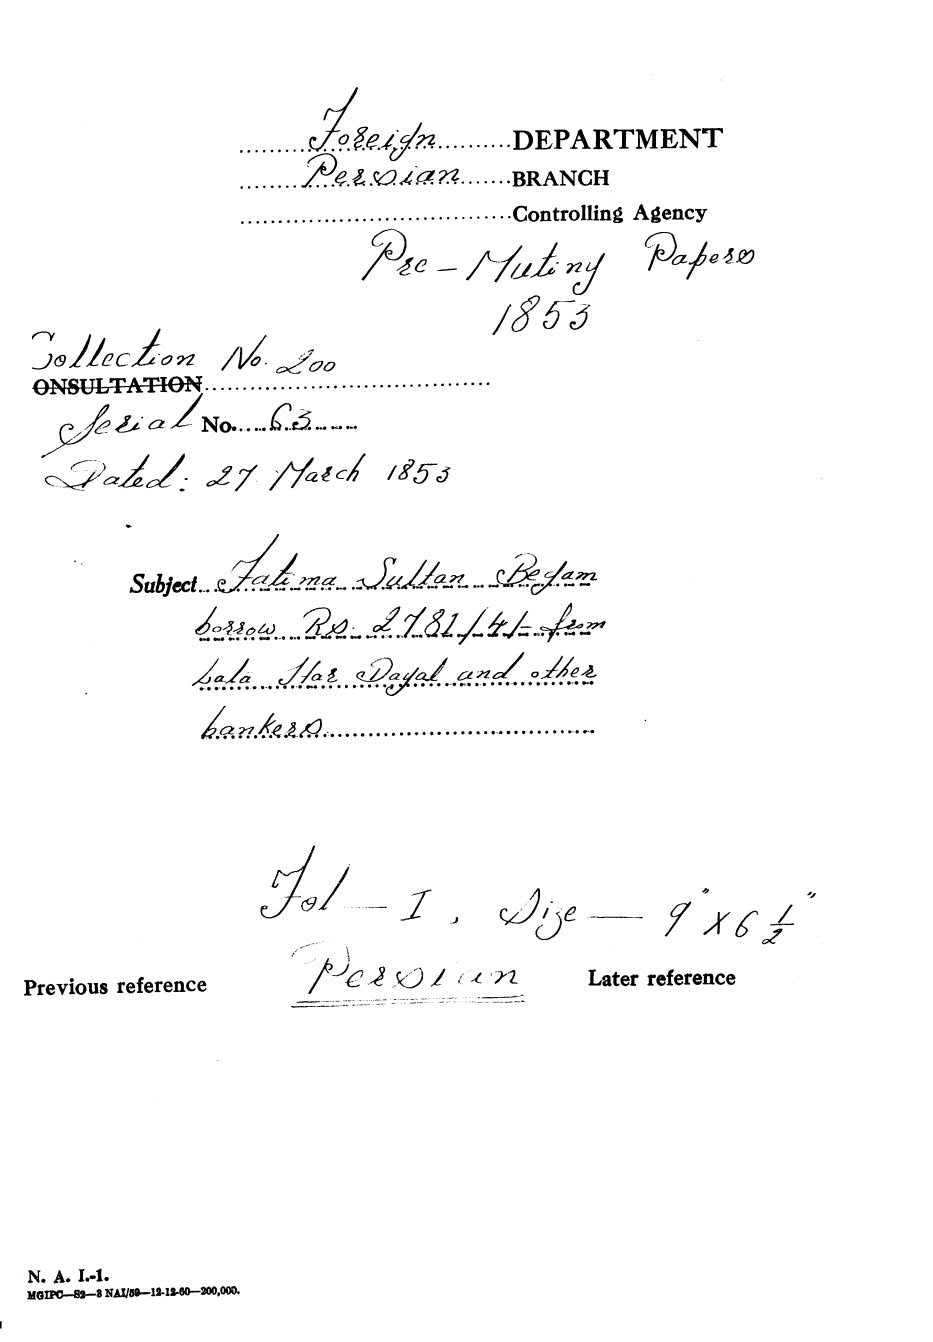 Foreign DEPARTMENT
Persian BRANCH
Controlling Agency
Pre - Mutiny Papers
1853
Collection No. 200
ONSULTATION
Serial No. 63
Dated: 27 March 1853
Subject Fatima Sultan Begam
borrow Rs. 2781/4/- from
Lala Har Dayal and other
bankers
Fol — I, Size — 9" X 6 1/2"
Persian
Previous reference
Later reference
N. A. I.-1.
MGIPC—S2—3 NAI/59—12-12-60—200,000.